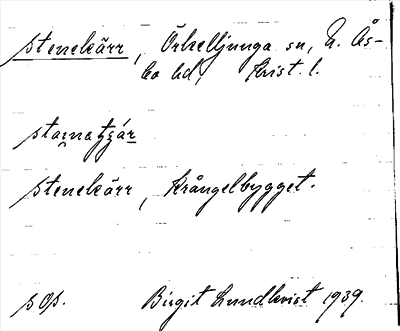 Stenekärr, Örkelljunga sn, N. Ås-
bo hd, Krist. l.
Stenekärr, Krångelbygget.
sOp. Birgit Lundkvist 1939.